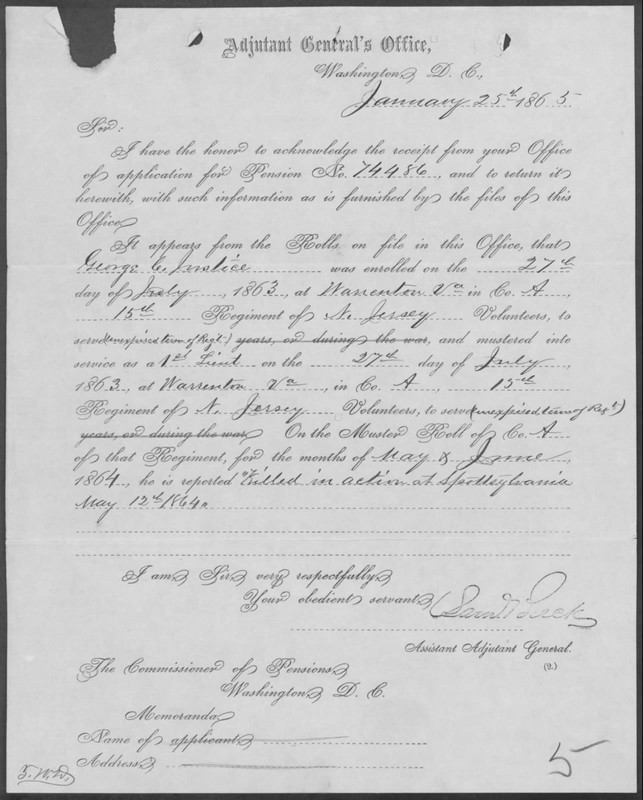 Adjutant General's Office,
Washington, D. C.,
January 25th 1865
Sir:
I have the honor to acknowledge the receipt from your Office
of application for Pension No. 74486, and to return it
herewith, with such information as is furnished by the files of this
Office.
It appears from the Rolls on file in this Office, that
George C. Justice was enrolled on the 27th
day of July, 1863, at Warrenton Va in Co. A,
15th Regiment of N. Jersey Volunteers, to
serve (unexpired term of Regt.) years, or during the war, and mustered into
service as a 1st Lieut on the 27th day of July,
1863, at Warrenton Va, in Co. A, 15th
Regiment of N. Jersey Volunteers, to serve (unexpired term of Regt.)
years, or during the war. On the Muster Roll of Co. A
of that Regiment, for the months of May & June,
1864, he is reported "Killed in action at Spottsylvania
May 12th 1864"
I am, Sir, very respectfully,
Your obedient servant,
Saml Breck
Assistant Adjutant General.
(2.)
The Commissioner of Pensions,
Washington, D. C.
Memoranda.
Name of applicant,
Address,
5